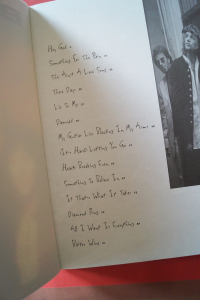 Hey God
Something For The Pain
This Ain't A Love Song
These Days
Lie To Me
Damned
My Guitar Lies Bleeding In My Arms
(It's Hard) Letting You Go
Hearts Breaking Even
Something To Believe In
If That's What It Takes
Diamond Ring
All I Want Is Everything
Bitter Wine